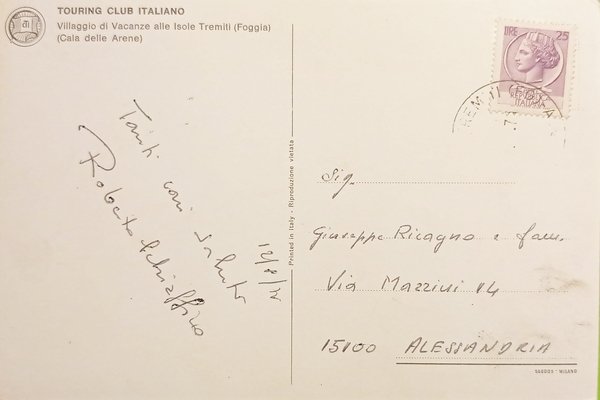 TOURING CLUB ITALIANO
Villaggio di Vacanze alle Isole Tremiti (Foggia)
(Cala delle Arene)
Tanti cari saluti
Roberto Schiaffino
Printed in Italy - Riproduzione vietata
LIRE 25
ITALIANA
Sig.
Giuseppe Ricagno e fam.
Via Mazzini 14
15100 ALESSANDRIA
SAGDOS - MILANO